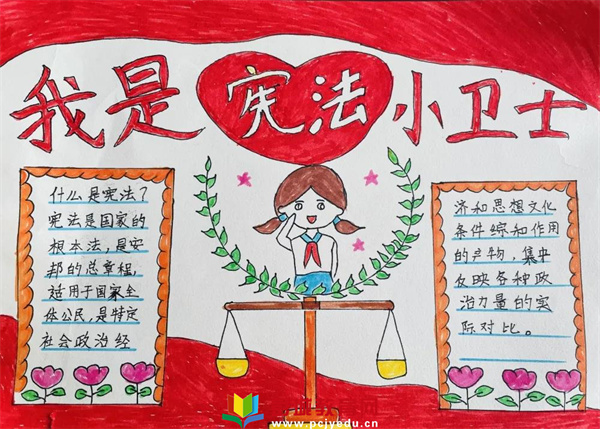 我是宪法小卫士
什么是宪法？
宪法是国家的
根本法，是安
邦的总章程，
适用于国家全
体公民，是特定
社会政治经
济和思想文化
条件综和作用
的产物，集中
反映各种政
治力量的实
际对比。
www.pcjyedu.cn